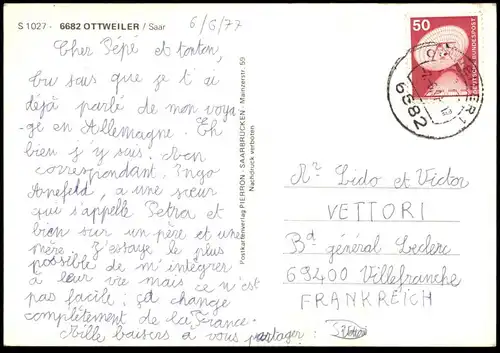 S 1027 - 6682 OTTWEILER / Saar
6/6/77
Cher Pépé et tonton,
Tu sais que je t'ai
déjà parlé de mon voya-
ge en Allemagne. Eh
bien j'y suis. Mon
correspondant, Ingo
Arnefeld, a une sœur
qui s'appelle Petra et
bien sur un père et une
mère. J'essaye le plus
possible de m'intégrer
à leur vie mais ce n'est
pas facile; ça change
complètement de la France.
Mille baisers à vous partager :
Postkartenverlag PIERRON · SAARBRÜCKEN · Mainzerstr. 55
Nachdruck verboten
50
DEUTSCHE BUNDESPOST
6682
Mr Lido et Victor
VETTORI
Bd général Leclerc
69400 Villefranche
FRANKREICH